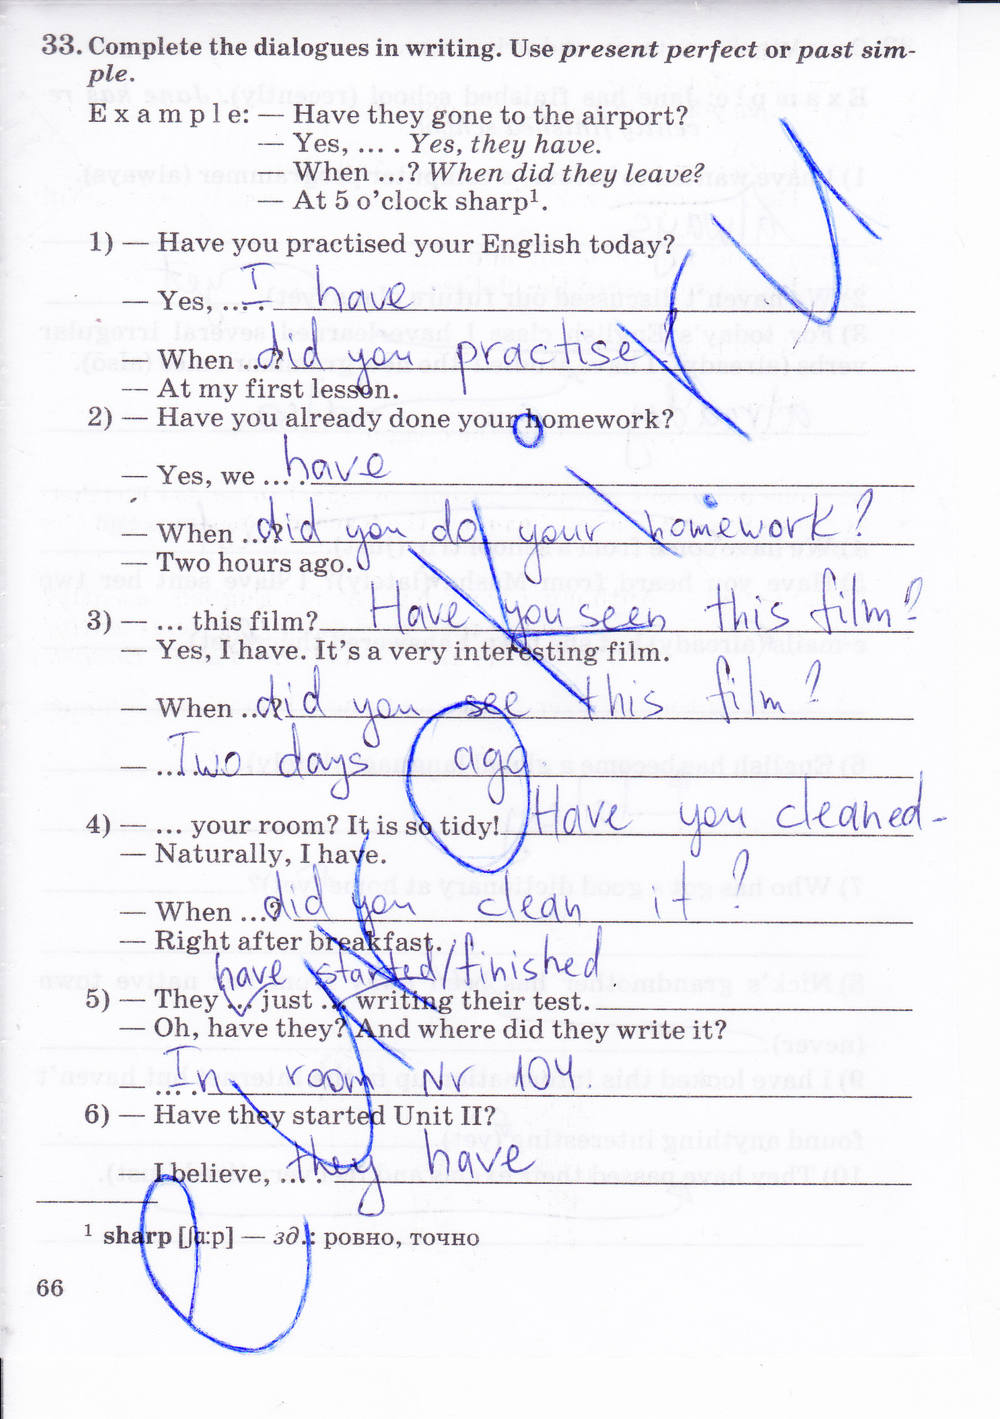 33. Complete the dialogues in writing. Use present perfect or past sim-
ple.
Example: — Have they gone to the airport?
— Yes, ... . Yes, they have.
— When ...? When did they leave?
— At 5 o'clock sharp¹.
1) — Have you practised your English today?
— Yes, ... . I have
— When ...? did you practise?
— At my first lesson.
2) — Have you already done your homework?
— Yes, we ... . have
— When ...? did you do your homework?
— Two hours ago.
3) — ... this film? Have you seen this film?
Yes, I have. It's a very interesting film.
When ...? did you see this film?
— ... Two days ago
4) — ... your room? It is so tidy! Have you cleaned -
— Naturally, I have.
— When ...? did you clean it?
— Right after breakfast.
have started/finished
5) — They ... just ... writing their test.
— Oh, have they? And where did they write it?
— ... . In room Nr 104
6) — Have they started Unit II?
— I believe, ... . they have
¹ sharp [ʃɑ:p] — зд.: ровно, точно
66